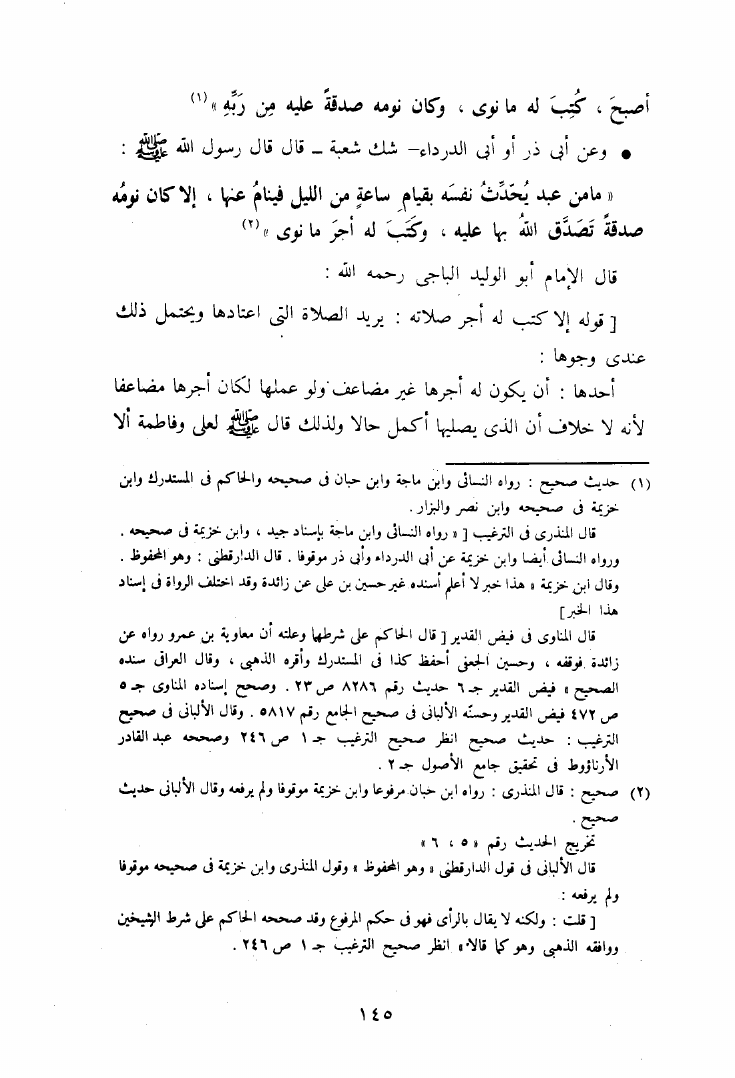 أصبحَ ، كُتِبَ له ما نوى ، وكان نومه صدقةً عليه مِن رَبِّهِ »(١)
● وعن أبى ذر أو أبى الدرداء– شك شعبة – قال قال رسول الله ﷺ :
« مامن عبد يُحَدِّثُ نفسَه بقيامِ ساعةٍ من الليل فينامُ عنها ، إلا كان نومُه
صدقةً تَصَدَّق اللهُ بها عليه ، وكَتَبَ له أجرَ ما نوى »(٢)
قال الإمام أبو الوليد الباجى رحمه الله :
[ قوله إلا كتب له أجر صلاته : يريد الصلاة التى اعتادها ويحتمل ذلك
عندى وجوها :
أحدها : أن يكون له أجرها غير مضاعف ولو عملها لكان أجرها مضاعفا
لأنه لا خلاف أن الذى يصليها أكمل حالا ولذلك قال ﷺ لعلى وفاطمة ألا
(١) حديث صحيح : رواه النسائى وابن ماجة وابن حبان فى صحيحه والحاكم فى المستدرك وابن
خزيمة فى صحيحه وابن نصر والبزار .
قال المنذرى فى الترغيب [ « رواه النسائى وابن ماجة بإسناد جيد ، وابن خزيمة فى صحيحه .
ورواه النسائى أيضا وابن خزيمة عن أبى الدرداء وأبى ذر موقوفا . قال الدارقطنى : وهو المحفوظ .
وقال ابن خزيمة « هذا خبر لا أعلم أسنده غير حسين بن على عن زائدة وقد اختلف الرواة فى إسناد
هذا الخبر]
قال المناوى فى فيض القدير [ قال الحاكم على شرطها وعلته أن معاوية بن عمرو رواه عن
زائدة فوقفه ، وحسين الجعفى أحفظ كذا فى المستدرك وأقره الذهبى ، وقال العراقى سنده
الصحيح » فيض القدير جـ٦ حديث رقم ٨٢٨٦ ص٢٣ . وصحح إسناده المناوى جـ٥
ص٤٧٢ فيض القدير وحسنّه الألبانى فى صحيح الجامع رقم ٥٨١٧ . وقال الألبانى فى صحيح
الترغيب : حديث صحيح انظر صحيح الترغيب جـ١ ص٢٤٦ وصححه عبد القادر
الأرناؤوط فى تحقيق جامع الأصول جـ٢ .
(٢) صحيح : قال المنذرى : رواه ابن حبان مرفوعا وابن خزيمة موقوفا ولم يرفعه وقال الألبانى حديث
صحيح .
تخريج الحديث رقم « ٥ ، ٦ »
قال الألبانى فى قول الدارقطنى « وهو المحفوظ » وقول المنذرى وابن خزيمة فى صحيحه موقوفا
ولم يرفعه :
[ قلت : ولكنه لا يقال بالرأى فهو فى حكم المرفوع وقد صححه الحاكم على شرط الشيخين
ووافقه الذهبى وهو كما قالا » انظر صحيح الترغيب جـ١ ص٢٤٦ .
١٤٥